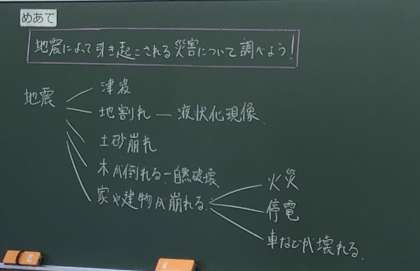 めあて
地震によって引き起こされる災害について調べよう!
地震
津波
地割れ ー 液状化現像
土砂崩れ
木が倒れる ー 自然破壊
家や建物が崩れる
火災
停電
車などが壊れる